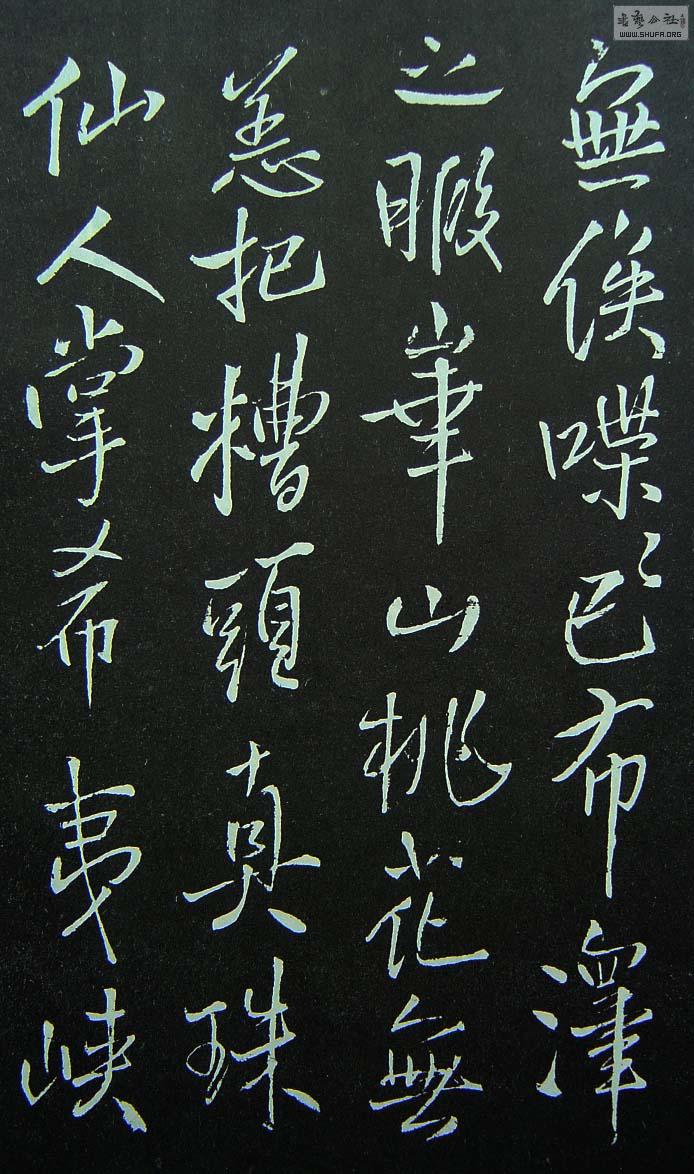 無俟喋〻已布澤
之暇華山桃花無
恙把糟頭真珠
仙人掌希夷峽
書藝公社
WWW.SHUFA.ORG